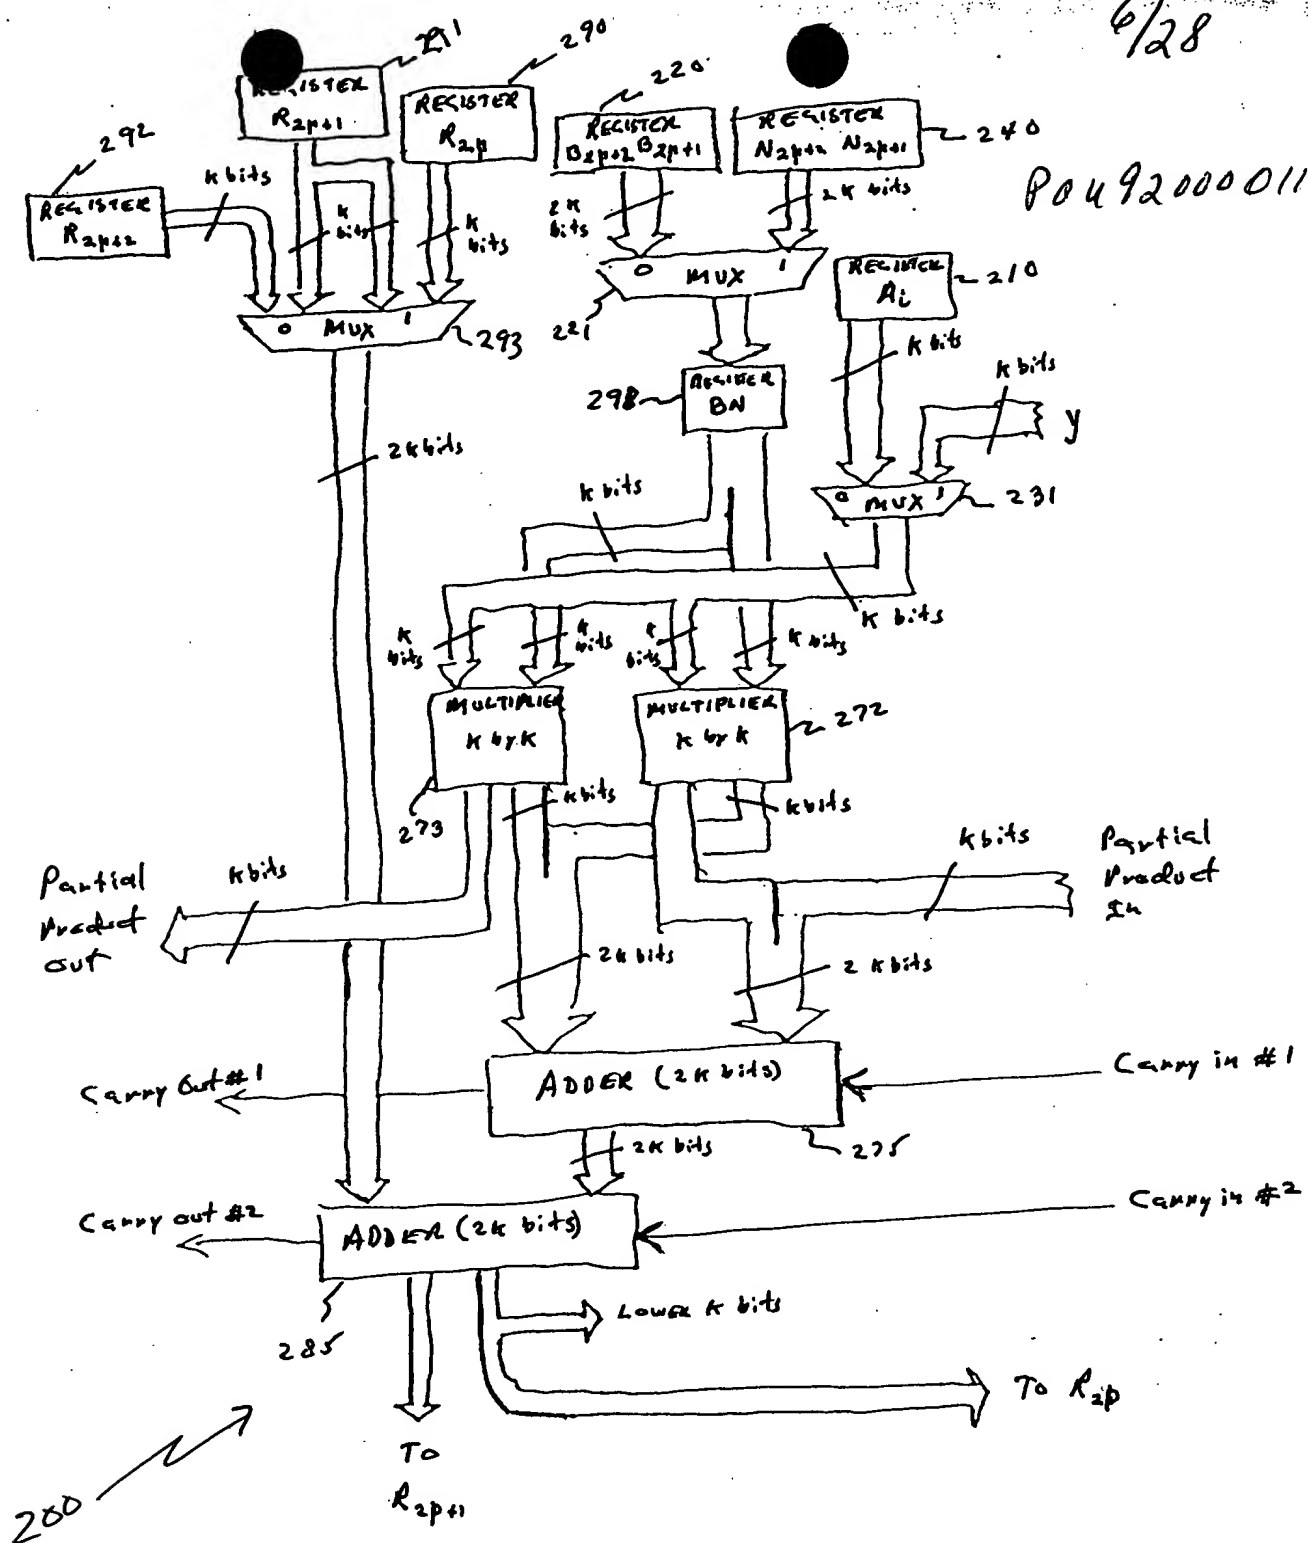 6/28
POU92000011
291
290
220
240
292
REGISTER
R2p+1
REGISTER
R2p
REGISTER
B2p+2 B2p+1
REGISTER
N2p+2 N2p+1
REGISTER
R2p+2
k bits
k
bits
k
bits
2k
bits
2k bits
0 MUX 1
293
0 MUX 1
221
REGISTER
Ai
210
k bits
k bits
y
REGISTER
BN
298
2k bits
0 MUX 1
231
k bits
k bits
k
bits
k
bits
k
bits
k bits
MULTIPLIER
k by k
273
MULTIPLIER
k by k
272
k bits
k bits
k bits
Partial
Product
In
Partial
Product
out
k bits
2k bits
2k bits
ADDER (2k bits)
275
Carry in #1
Carry Out #1
2k bits
ADDER (2k bits)
285
Carry in #2
Carry out #2
LOWER k bits
To R2p
To
R2p+1
200